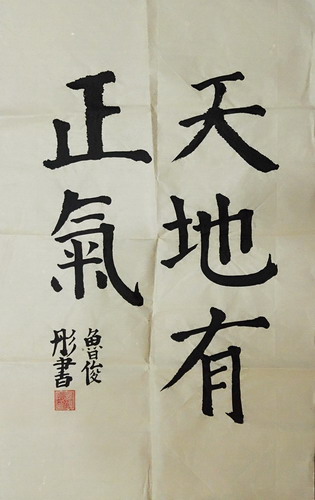 天地有
正氣
魯俊
彤書